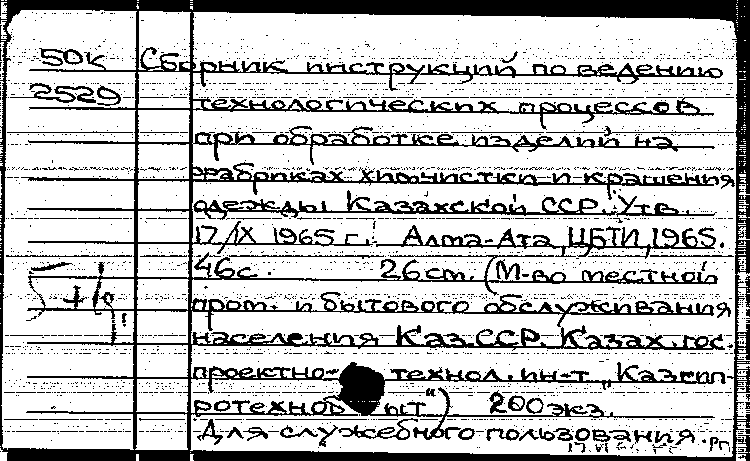 50К Сборник инструкций по ведению
2529 технологических процессов
при обработке изделий на
фабриках химчистки и крашения
одежды Казахской ССР. Утв.
17/IX 1965 г. Алма-Ата, ЦБТИ, 1965.
46с. 26 cm. (М-во местной
пром. и бытового обслуживания
населения Каз.ССР. Казах. гос.
проектно-технол. ин-т „Казгип-
ротехнобыт") 200 экз.
Для служебного пользования. Рп